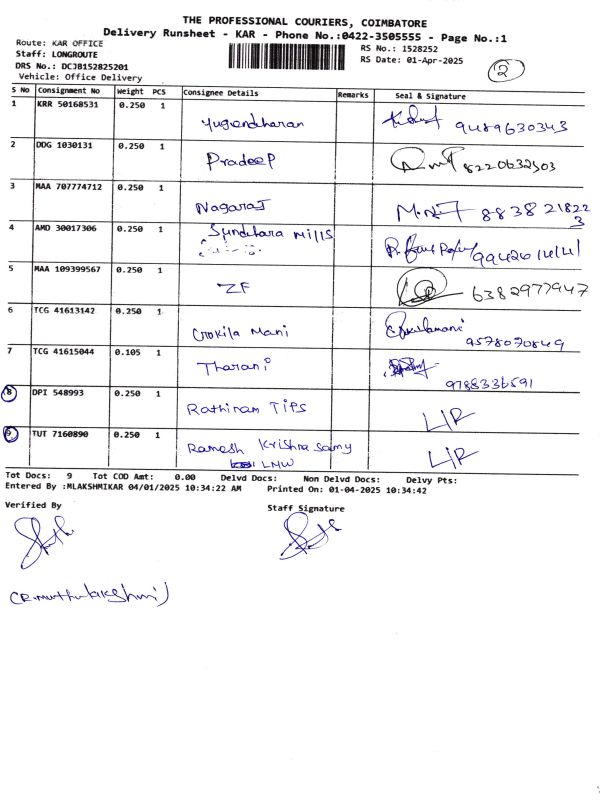 THE PROFESSIONAL COURIERS, COIMBATORE
Delivery Runsheet - KAR - Phone No.:0422-3505555 - Page No.:1
Route: KAR OFFICE
RS No.: 1528252
Staff: LONGROUTE
RS Date: 01-Apr-2025
2
DRS No.: DCJB152825201
Vehicle: Office Delivery
S No Consignment No Weight PCS Consignee Details Remarks Seal & Signature
1 KRR 50168531 0.250 1
Yugendharan 9489630343
2 DDG 1030131 0.250 1
Pradeep 8220632503
3 MAA 707774712 0.250 1
Nagaraj 8838218223
4 AMD 30017306 0.250 1
Mills
5 MAA 109399567 0.250 1
ZF 6382977947
6 TCG 41613142 0.250 1
Mani 9578070849
7 TCG 41615044 0.105 1
Tharani 9788336591
8 DPI 548993 0.250 1
Rathinam Tips LIR
9 TUT 7160890 0.250 1
Ramesh Krishna Samy LIR
LMW
Tot Docs: 9 Tot COD Amt: 0.00 Delvd Docs: Non Delvd Docs: Delvy Pts:
Entered By :MLAKSHMIKAR 04/01/2025 10:34:22 AM Printed On: 01-04-2025 10:34:42
Verified By Staff Signature
(R.Muthulakshmi)